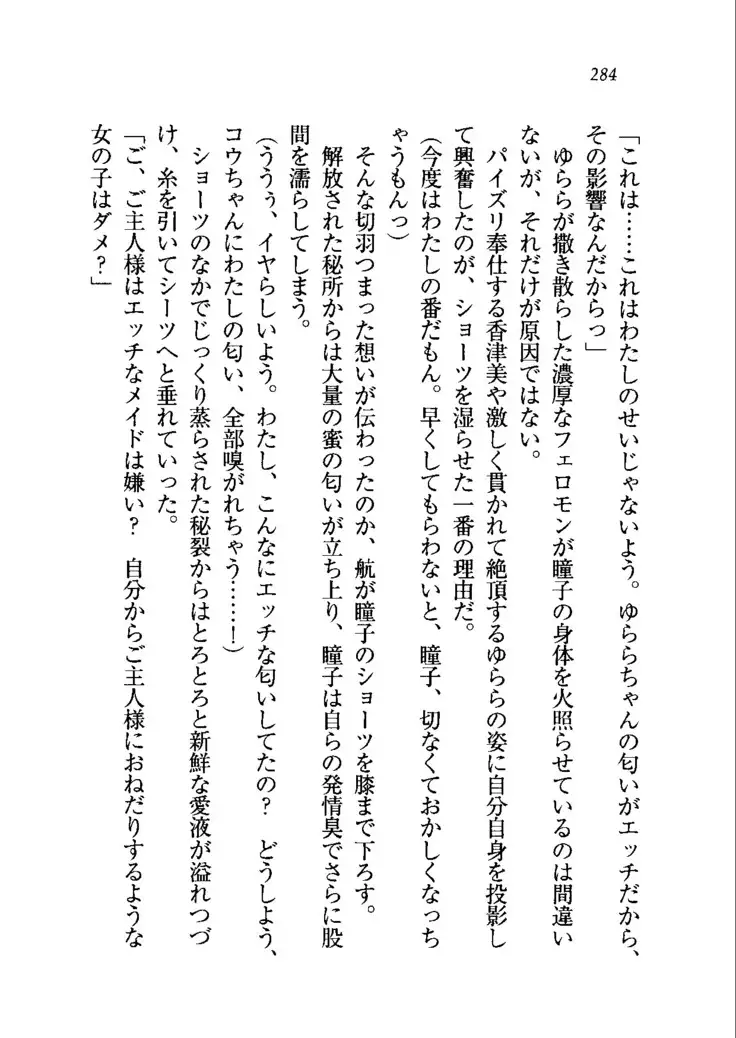 284
「これは……これはわたしのせいじゃないよう。ゆららちゃんの匂いがエッチだから、
その影響なんだからっ」
　ゆららが撒き散らした濃厚なフェロモンが瞳子の身体を火照らせているのは間違い
ないが、それだけが原因ではない。
　パイズリ奉仕する香津美や激しく貫かれて絶頂するゆららの姿に自分自身を投影し
て興奮したのが、ショーツを湿らせた一番の理由だ。
（今度はわたしの番だもん。早くしてもらわないと、瞳子、切なくておかしくなっち
ゃうもんっ）
　そんな切羽つまった想いが伝わったのか、航が瞳子のショーツを膝まで下ろす。
　解放された秘所からは大量の蜜の匂いが立ち上り、瞳子は自らの発情臭でさらに股
間を濡らしてしまう。
（ううぅ、イヤらしいよう。わたし、こんなにエッチな匂いしてたの？　どうしよう、
コウちゃんにわたしの匂い、全部嗅がれちゃう……！）
　ショーツのなかでじっくり蒸らされた秘裂からはとろとろと新鮮な愛液が溢れつづ
け、糸を引いてシーツへと垂れていった。
「ご、ご主人様はエッチなメイドは嫌い？　自分からご主人様におねだりするような
女の子はダメ？」